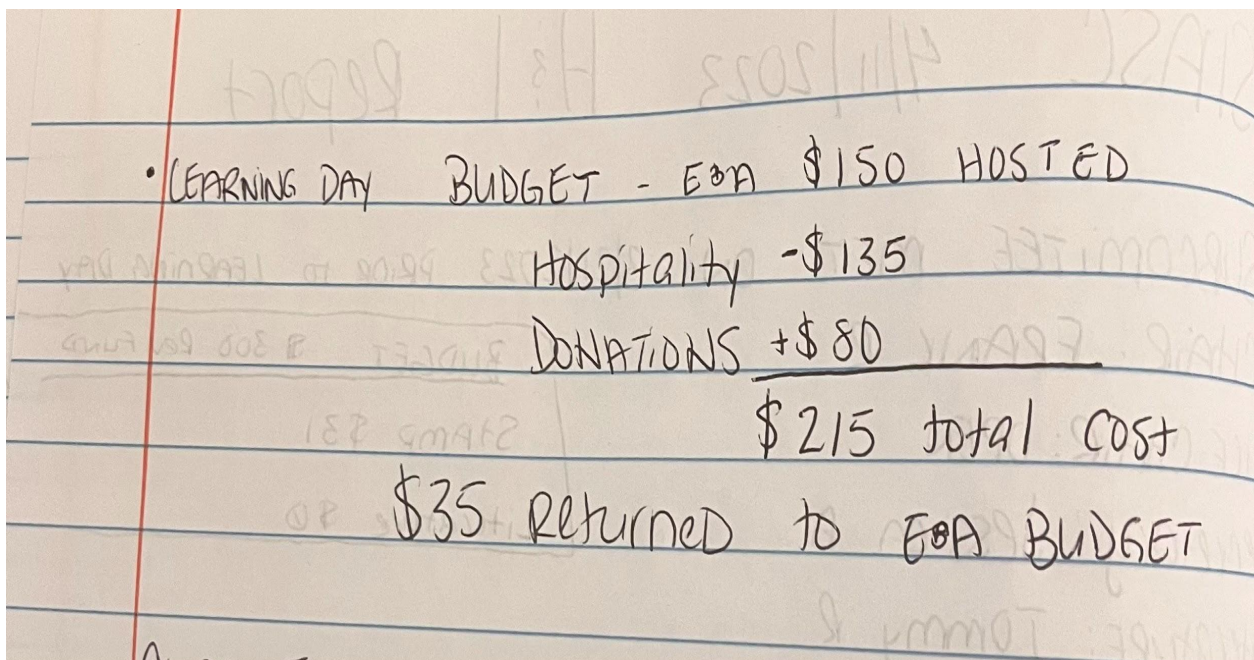 • LEARNING DAY BUDGET - E&A $150 HOSTED
Hospitality -$135
DONATIONS +$80
$215 total cost
$35 Returned to E&A BUDGET